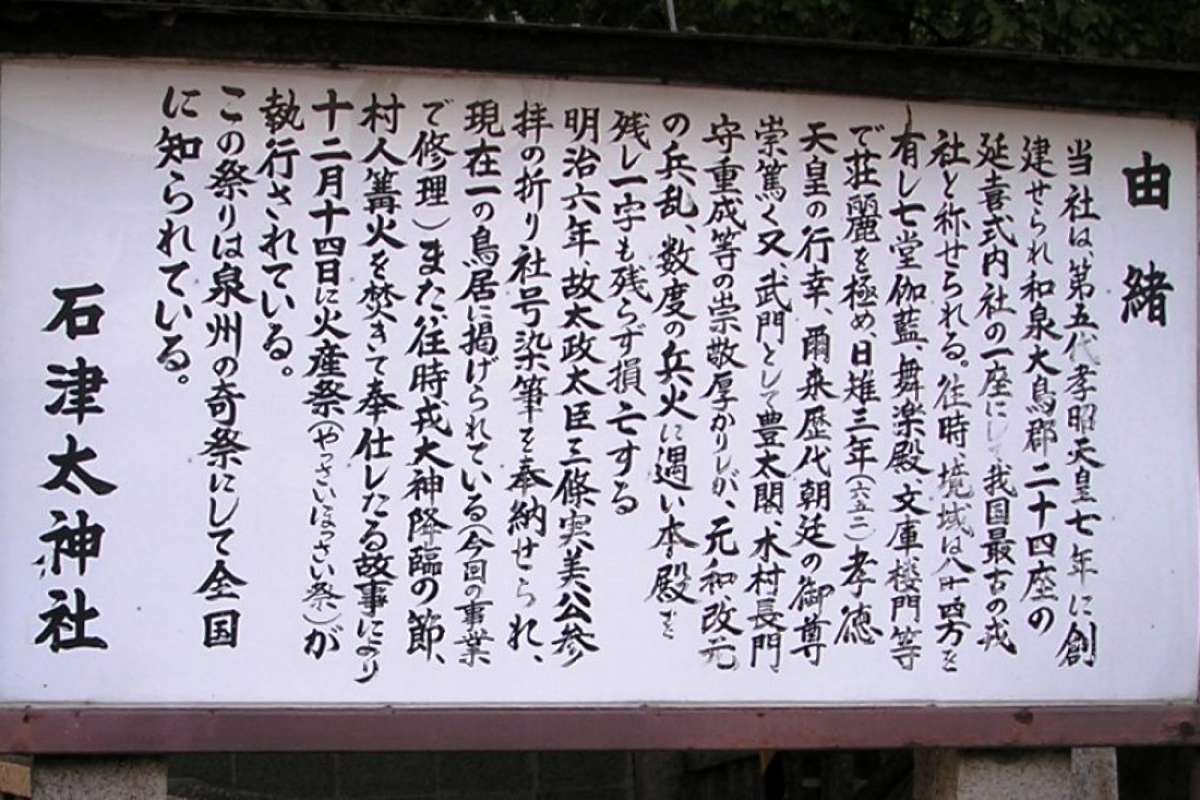 由緒
当社は、第五代孝昭天皇七年に創
建せられ和泉大鳥郡二十四座の
延喜式内社の一座にして我国最古の戎
社と称せられる。往時、境域は八丁四方を
有し七堂伽藍、舞楽殿、文庫楼門等
で荘麗を極め、日雉三年(六五二)孝徳
天皇の行幸、爾来歴代朝廷の御尊
崇篤く又、武門として豊太閤、木村長門
守重成等の崇敬厚かりしが、元和改元
の兵乱、数度の兵火に遇い本殿すら
残し一字も残らず損亡する
明治六年故太政大臣三條実美公参
拝の折り社号染筆を奉納せられ、
現在一の鳥居に掲げられている(今回の事業
で修理)また、往時戎大神降臨の節、
村人篝火を焚きて奉仕したる故事により
十二月十四日に火産祭(やっさいほっさい祭)が
執行されている。
この祭りは泉州の奇祭にして全国
に知られている。
石津太神社